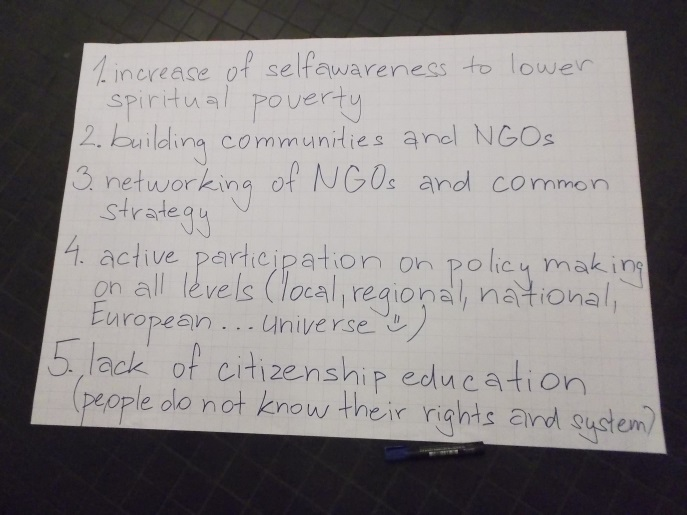 1. increase of selfawareness to lower
spiritual poverty
2. building communities and NGOs
3. networking of NGOs and common
strategy
4. active participation on policy making
on all levels (local, regional, national,
European... universe )
5. lack of citizenship education
(people do not know their rights and system)